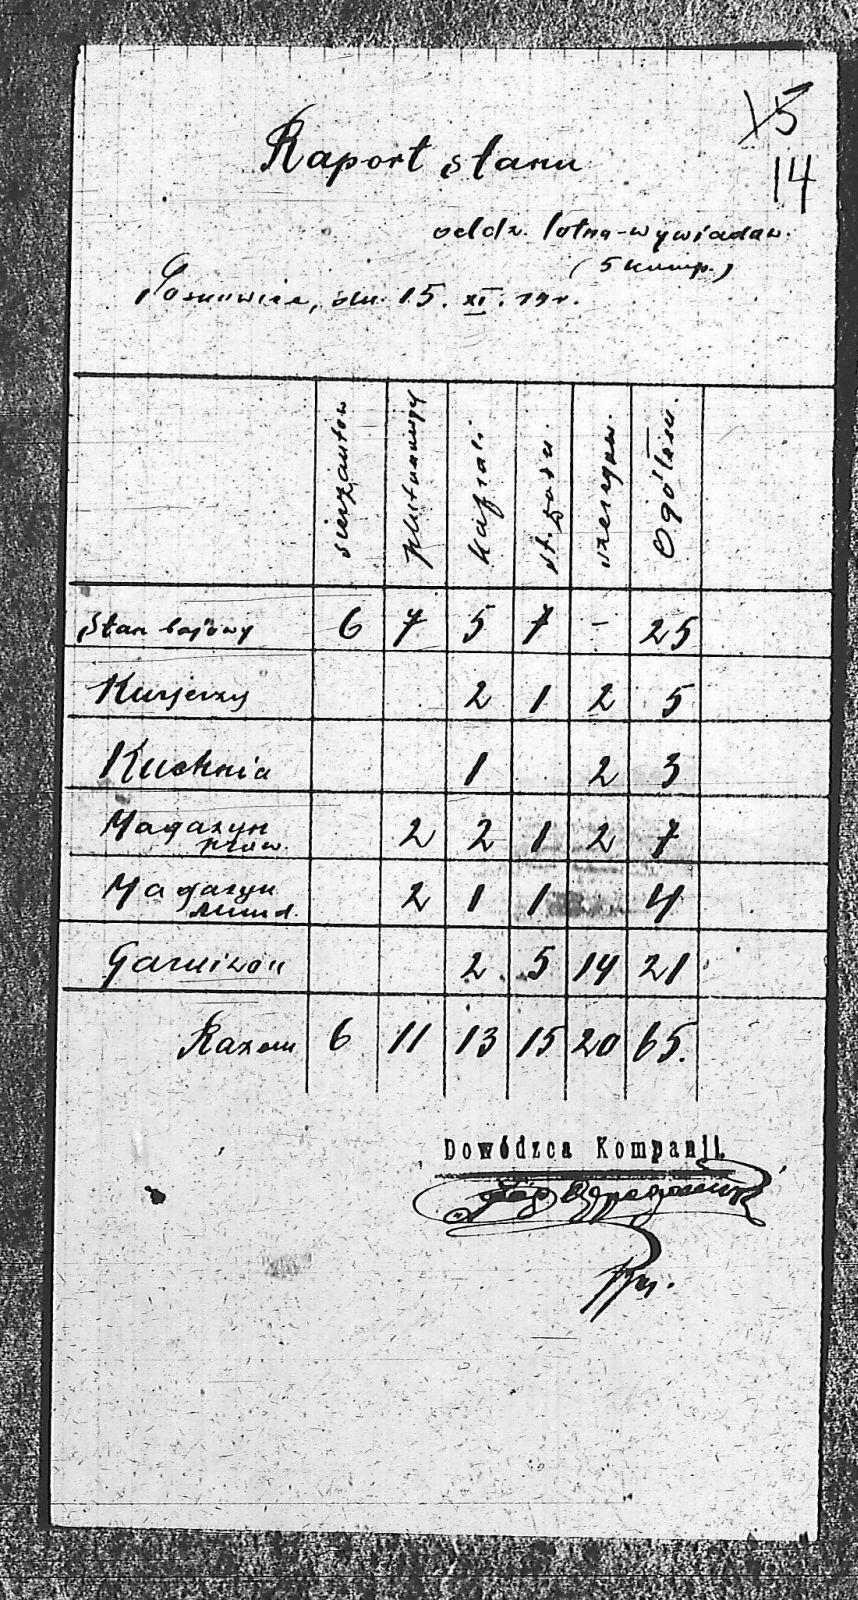 15
14
Raport stanu
oddz. lotno-wywiadow.
(5 komp.)
Sosnowiec, dn. 15. XI. 19 r.
sierżantów plutonowych kaprali st. żołn. szeregow. Ogółem.
Stan bojowy 6 7 5 7 - 25
Kurjerzy 2 1 2 5
Kuchnia 1 2 3
Magazyn 2 2 1 2 7
prow.
Magazyn 2 1 1 4
mund.
Garnizon 2 5 14 21
Razem 6 11 13 15 20 65.
Dowódzca Kompanji.